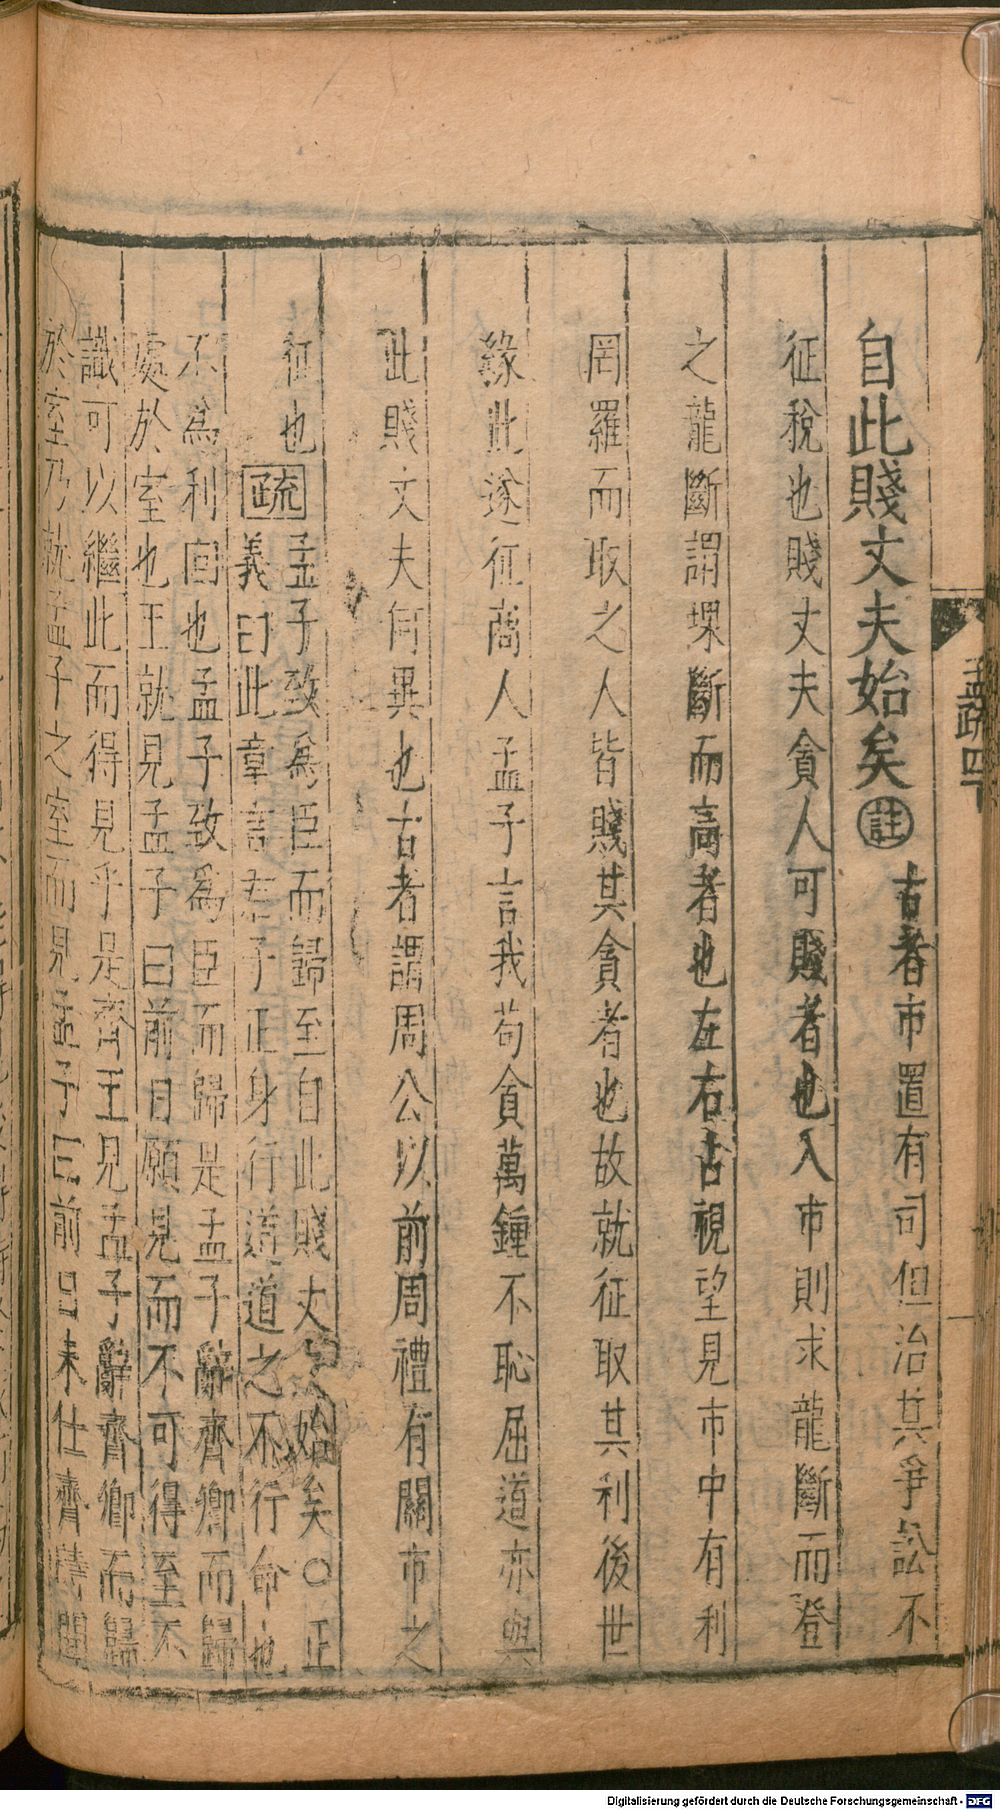 孟疏四下
自此賤丈夫始矣註古者市置有司但治其爭訟不
征稅也賤丈夫貪人可賤者也入市則求龍斷而登
之龍斷謂堁斷而高者也左右占視望見市中有利
罔羅而取之人皆賤其貪者也故就征取其利後世
緣此遂征商人孟子言我苟貪萬鍾不恥屈道亦與
此賤丈夫何異也古者謂周公以前周禮有關市之
征也疏孟子致爲臣而歸至自此賤丈夫始矣○正
義曰此章言君子正身行道道之不行命也
不爲利回也孟子致爲臣而歸是孟子辭齊卿而歸
處於室也王就見孟子曰前日願見而不可得至不
識可以繼此而得見乎是齊王見孟子辭齊卿而歸
於室乃就孟子之室而見孟子曰前日未仕齊時聞
Digitalisierung gefördert durch die Deutsche Forschungsgemeinschaft - DFG